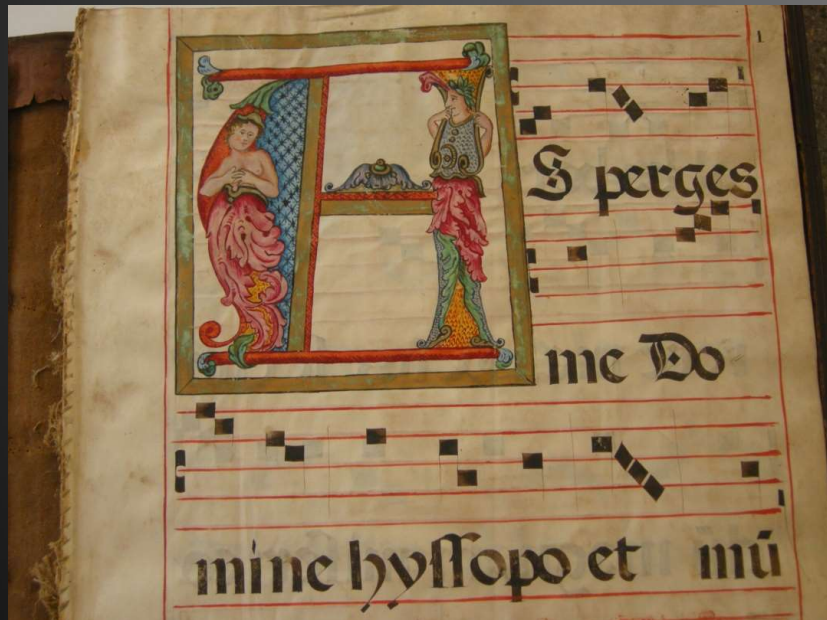 1
A S perges
me Do
mine hyſſopo et mū